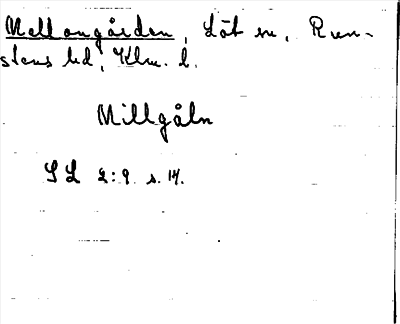 Mellangården, Löt sn, Run-
stens hd, Klm. l.
Millgåln
SL 2:9 s. 14.